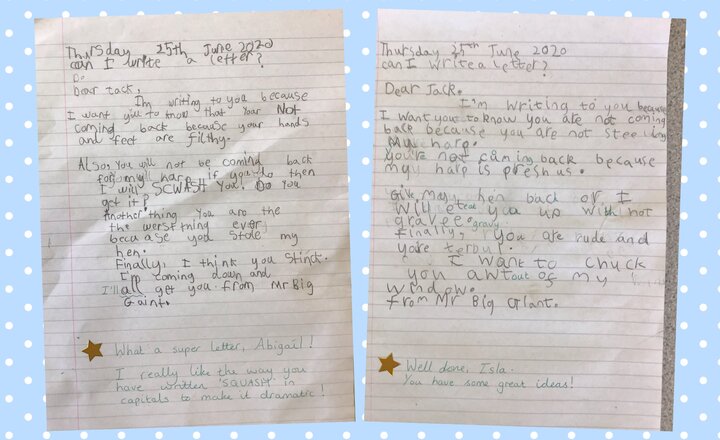 Thursday 25th June 2020
can I write a letter?
De
Dear Jack,
I'm writing to you because
I want you to know that your Not
coming back because your hands
and feet are filthy.
Also, you will not be coming back
for my harp if you do then
I will SCWASH You! Do You
get it?
Another thing you are the
the werst thing ever
becase you stole my
hen.
Finally, I think you stinck.
I'm coming down and
I'll all get you. from Mr Big
Gaint.
What a super letter, Abigail!
I really like the way you
have written 'SQUASH' in
capitals to make it dramatic!
Thursday 25th June 2020
can I write a letter?
Dear Jack.
I'm writing to you because
I want you to know you are not coming
back because you are not steeling
My harp.
you're not caming back because
myu harp is preshus.
Give Myu hen back or I
will et eat you up with not
gravee. gravy
Finally, you are rude and
you're terbul.
I want to chuck
you awt out of my
window.
from Mr Big Giant.
Well done, Isla.
You have some great ideas!